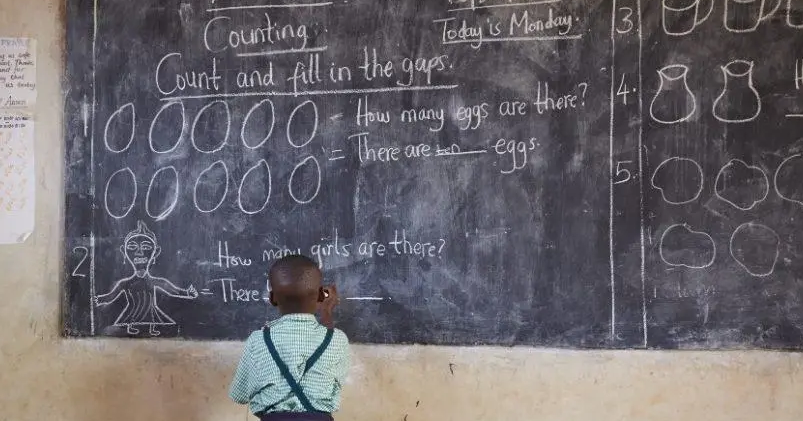 Counting
Today is Monday.
Count and fill in the gaps.
= How many eggs are there?
= There are ten eggs.
2
How many girls are there?
= There
3
4.
5.